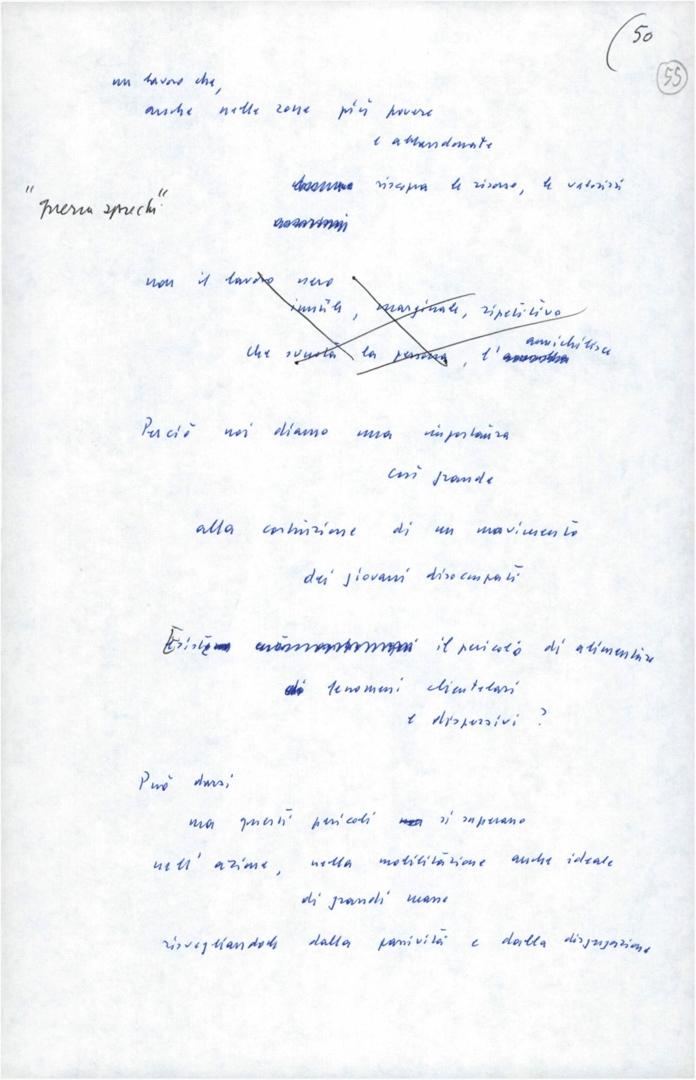 50
55
un lavoro che,
anche nelle zone più povere
e abbandonate
riscopra le risorse, le valorizzi
"prem sprechi"
non il lavoro nero
inutile, marginale, ripetitivo
annichilisce
che svuota la persona, l'
Perciò noi diamo una importanza
così grande
alla costruzione di un movimento
dei giovani disoccupati
Esiste il pericolo di alimentare
fenomeni clientelari
e dispersivi?
Può darsi
ma questi pericoli si superano
nell'azione, nella mobilitazione anche ideale
di grandi masse
risvegliandole dalla passività e dalla disgregazione